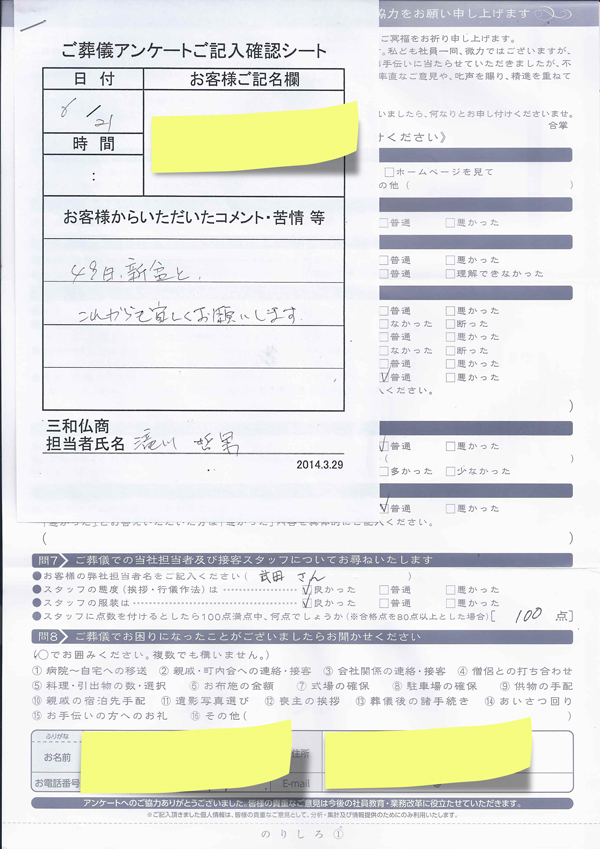 協力をお願い申し上げます
ご冥福をお祈り申し上げます。
。私ども社員一同、微力ではございますが、
お手伝いに当たらせていただきましたが、不
率直なご意見や、叱声を賜り、精進を重ねて
いましたら、何なりとお申し付けくださいませ。
合掌
けください》
ご葬儀アンケートご記入確認シート
日付
お客様ご記名欄
8/21
時間
:
お客様からいただいたコメント・苦情 等
49日、新盆と、
これからも宜しくお願いします
三和仏商
担当者氏名 滝川 哲男
2014.3.29
□ホームページを見て
の他( )
□普通 □悪かった
□普通 □悪かった
□普通 □理解できなかった
□普通 □悪かった
□なかった □断った
□普通 □悪かった
□なかった □断った
☑普通 □悪かった
ください。
)
☑普通 □悪かった
( )
□多かった □少なかった
☑普通 □悪かった
「悪かった」とお答えいただいた方は「悪かった」内容を具体的にご記入ください。
( )
問7 ご葬儀での当社担当者及び接客スタッフについてお尋ねいたします
●お客様の弊社担当者名をご記入ください( 武田さん )
●スタッフの態度(挨拶・行儀作法)は ☑良かった □普通 □悪かった
●スタッフの服装は ☑良かった □普通 □悪かった
●スタッフに点数を付けるとしたら100点満点中、何点でしょうか(※合格点を80点以上とした場合)[ 100 点]
問8 ご葬儀でお困りになったことがございましたらお聞かせください
(○でお囲みください。複数でも構いません。)
①病院〜自宅への移送 ②親戚・町内会への連絡・接客 ③会社関係の連絡・接客 ④僧侶との打ち合わせ
⑤料理・引出物の数・選択 ⑥お布施の金額 ⑦式場の確保 ⑧駐車場の確保 ⑨供物の手配
⑩親戚の宿泊先手配 ⑪遺影写真選び ⑫喪主の挨拶 ⑬葬儀後の諸手続き ⑭あいさつ回り
⑮お手伝いの方へのお礼 ⑯その他( )
ふりがな
お名前
住所
お電話番号
E-mail
アンケートへのご協力ありがとうございました。皆様の貴重なご意見は今後の社員教育・業務改革に役立たせていただきます。
※ご記入頂きました個人情報は、皆様の貴重なご意見として、分析・集計及び情報提供のためにのみ利用いたします。
のりしろ①